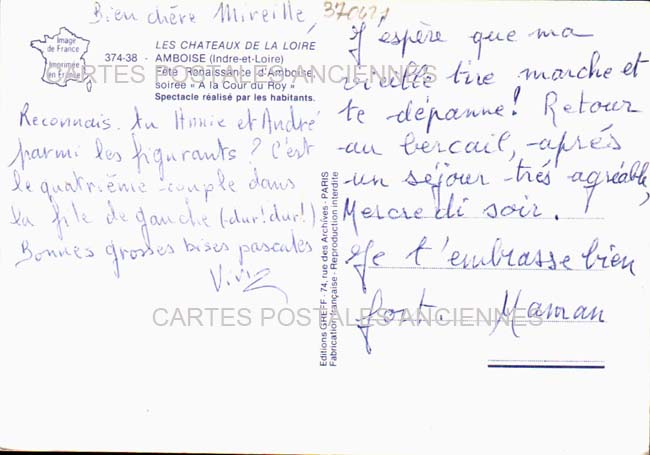 Bien chère Mireille,
370621
Image
de France
Imprimée
en France
374-38 -
LES CHATEAUX DE LA LOIRE
AMBOISE (Indre-et-Loire)
Fête Renaissance d'Amboise,
soirée « A la Cour du Roy »
Spectacle réalisé par les habitants.
Reconnais-tu Annie et André
parmi les figurants ? C'est
le quatrième couple dans
la file de gauche (dur! dur!)
Bonnes grosses bises pascales
Editions GREFF - 74, rue des Archives - PARIS
Fabrication française - Reproduction interdite
J'espère que ma
vieille tire marche et
te dépanne! Retour
au bercail, après
un séjour très agréable,
Mercredi soir.
Je t'embrasse bien
fort. Maman
CARTES POSTALES ANCIENNES
CARTES POSTALES ANCIENNES